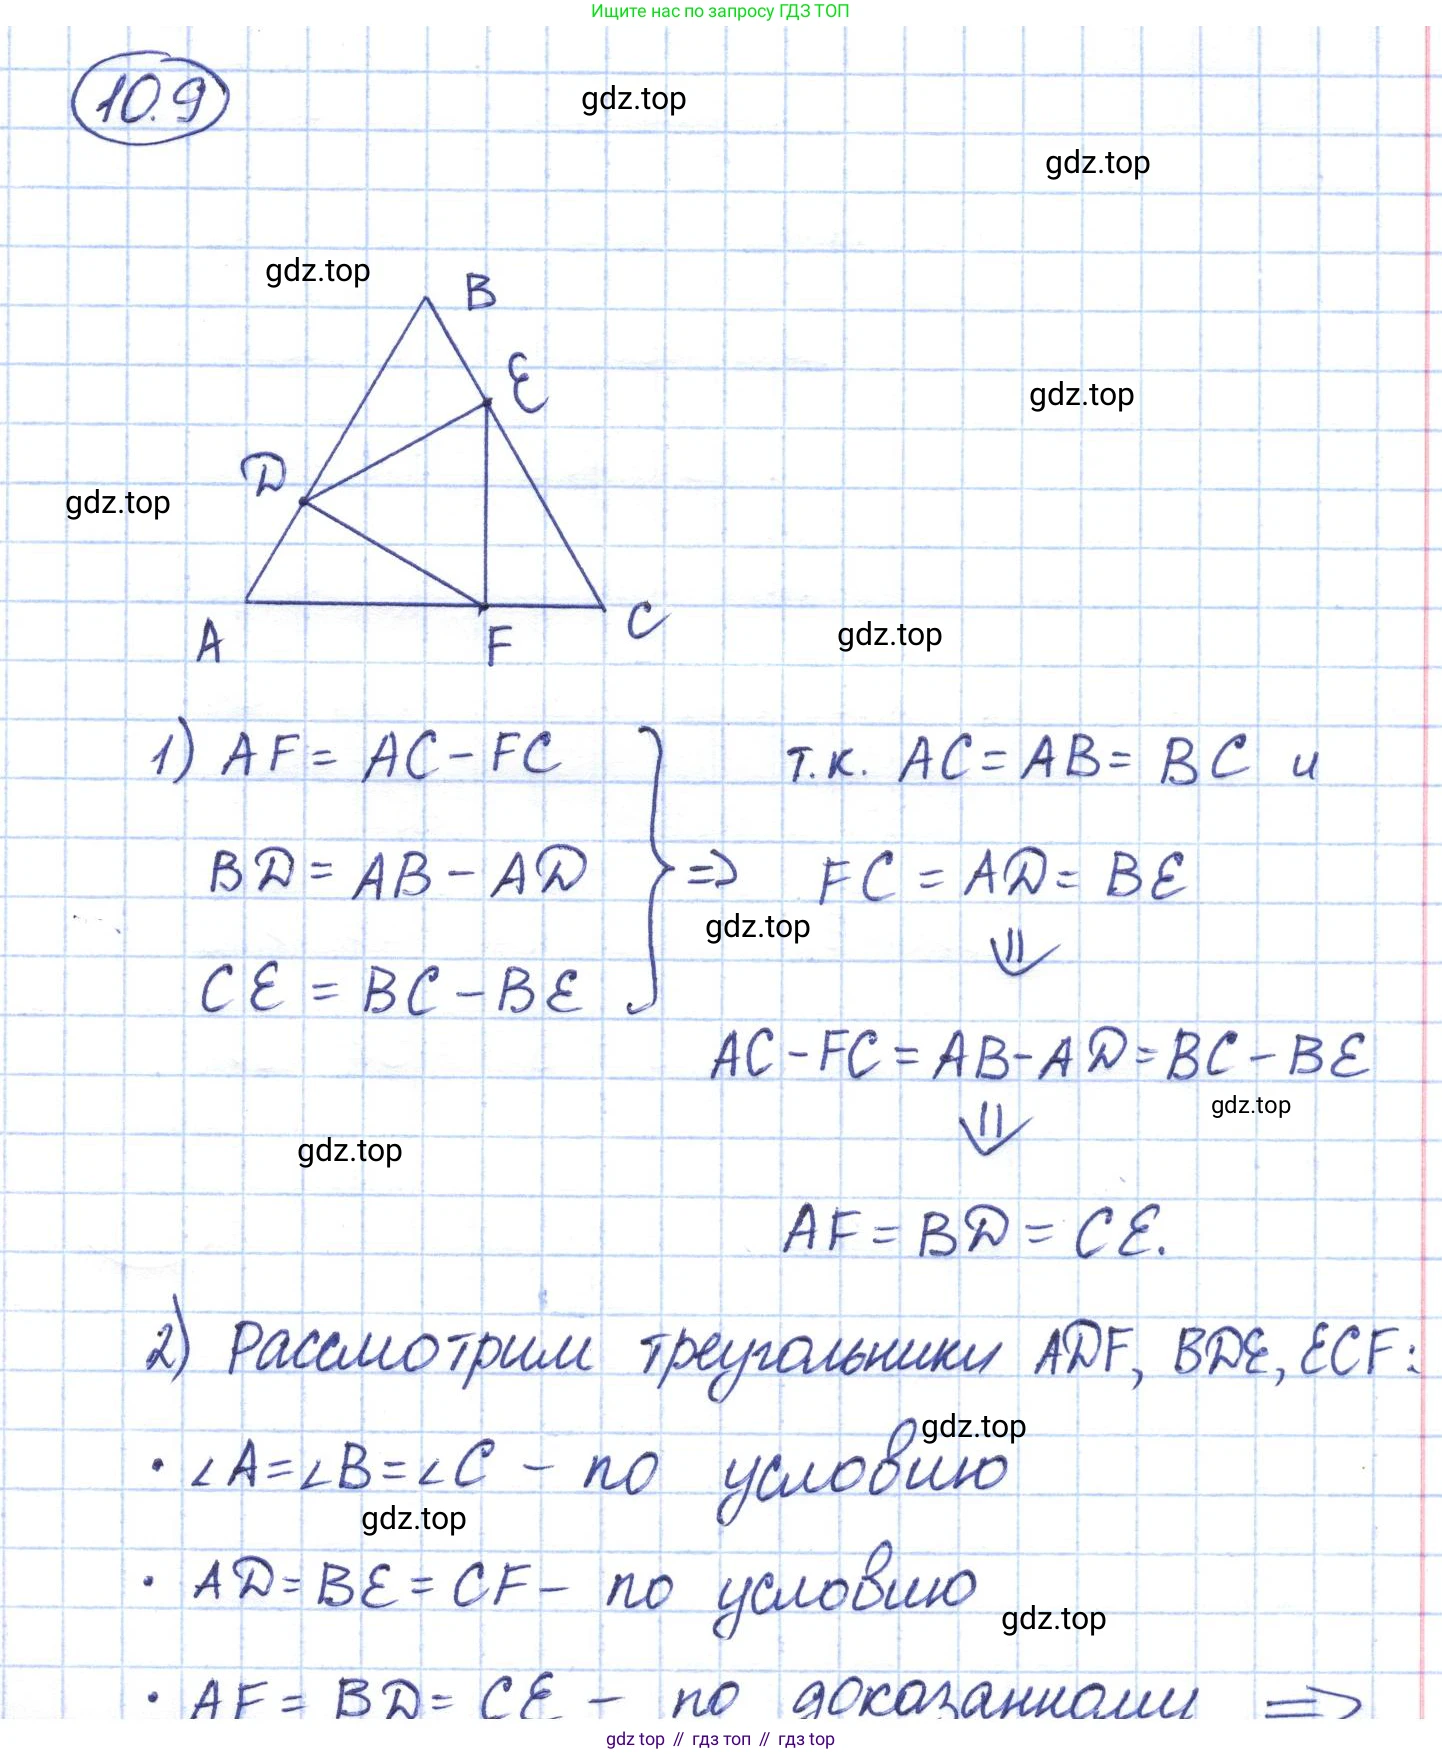 Ищите нас по запросу ГДЗ ТОП
10.9
gdz.top
gdz.top
gdz.top
B
E
gdz.top
D
gdz.top
A
F
C
gdz.top
1) AF = AC - FC
т.к. AC = AB = BC и
BD = AB - AD
=> FC = AD = BE
gdz.top
⇓
CE = BC - BE
AC - FC = AB - AD = BC - BE
gdz.top
⇓
gdz.top
AF = BD = CE.
2) Рассмотрим треугольники ADF, BDE, ECF:
gdz.top
• ∠A = ∠B = ∠C - по условию
gdz.top
• AD = BE = CF - по условию
gdz.top
• AF = BD = CE - по доказанному =>
gdz.top // гдз топ // гдз top